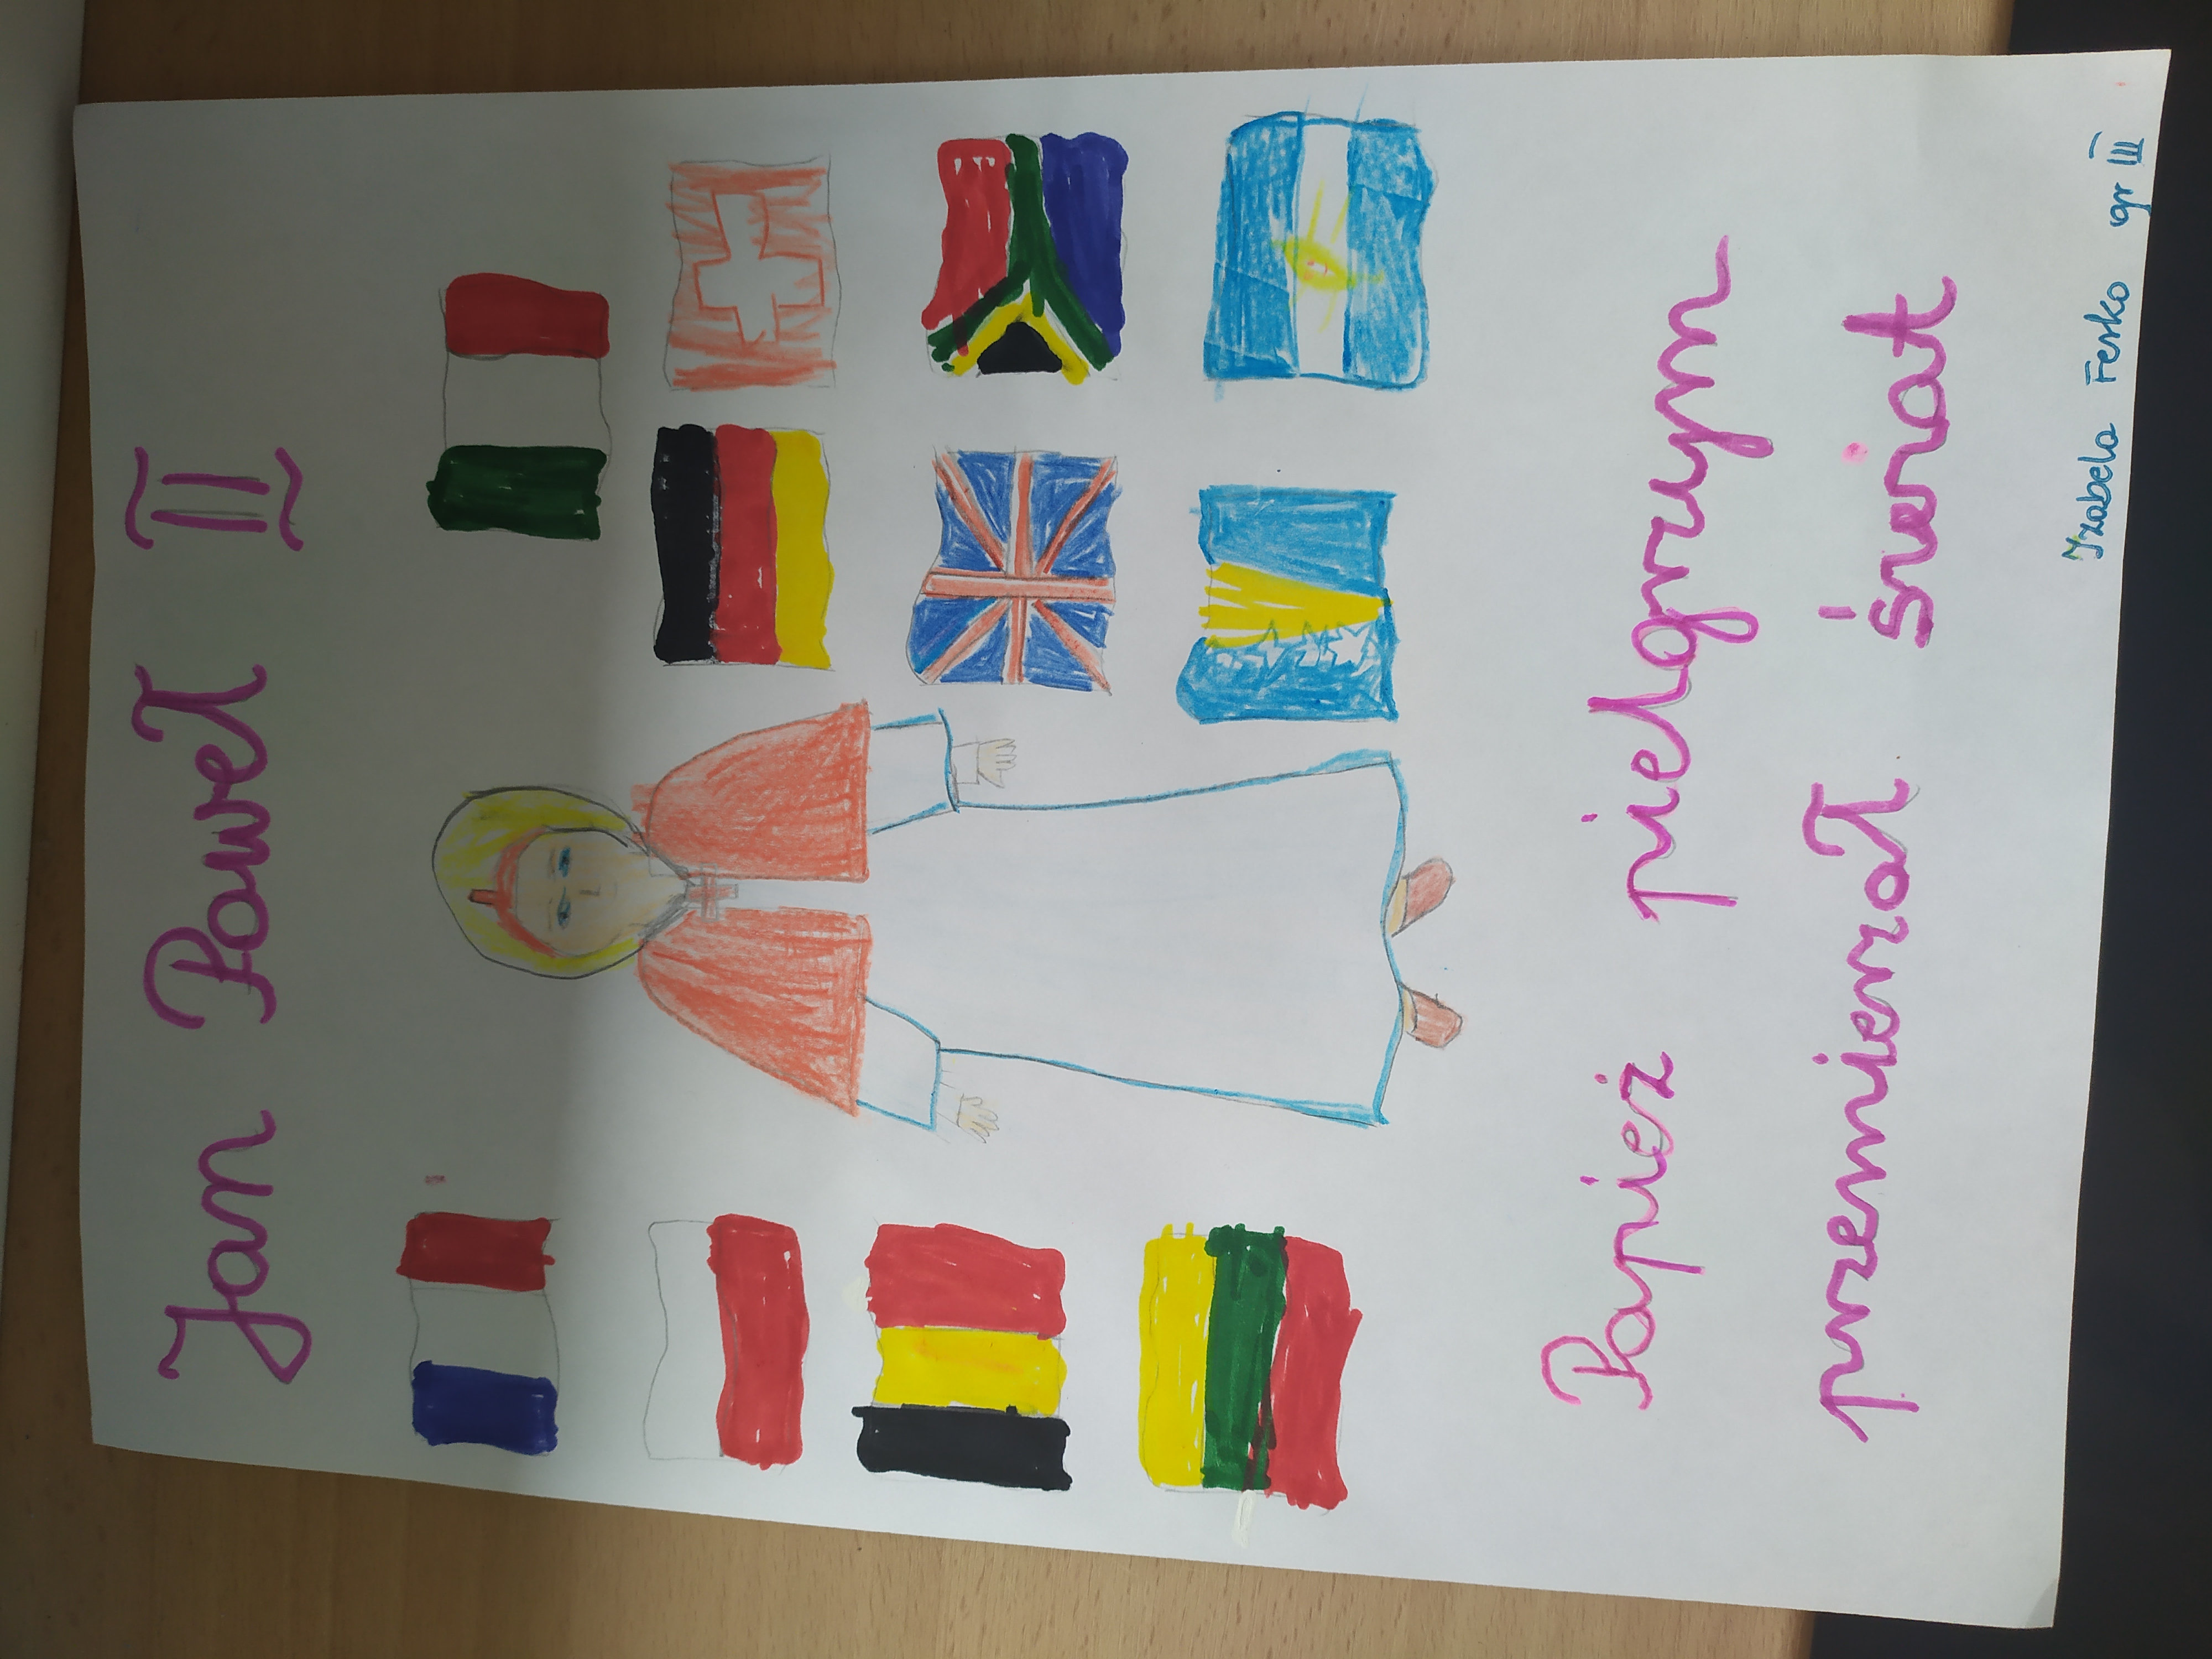 Jan Paweł II
Papież pielgrzym
przemierzał świat
Izabela Fesko gr III